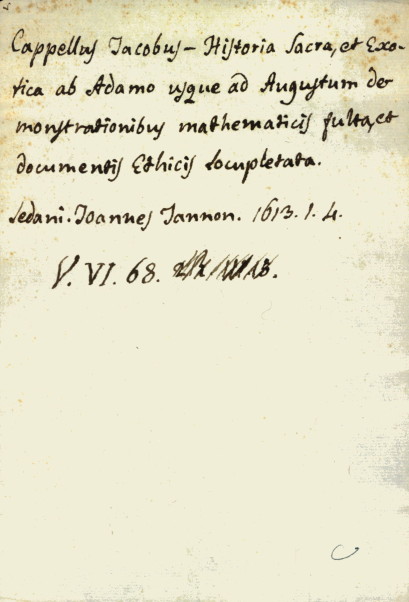 Cappellus Iacobus - Historia Sacra, et Exo-
tica ab Adamo usque ad Augustum de
monstrationibus mathematicis fulta, et
documentis Ethicis locupletata.
Sedani. Ioannes Iannon. 1613. 1. 4.
V. VI. 68.